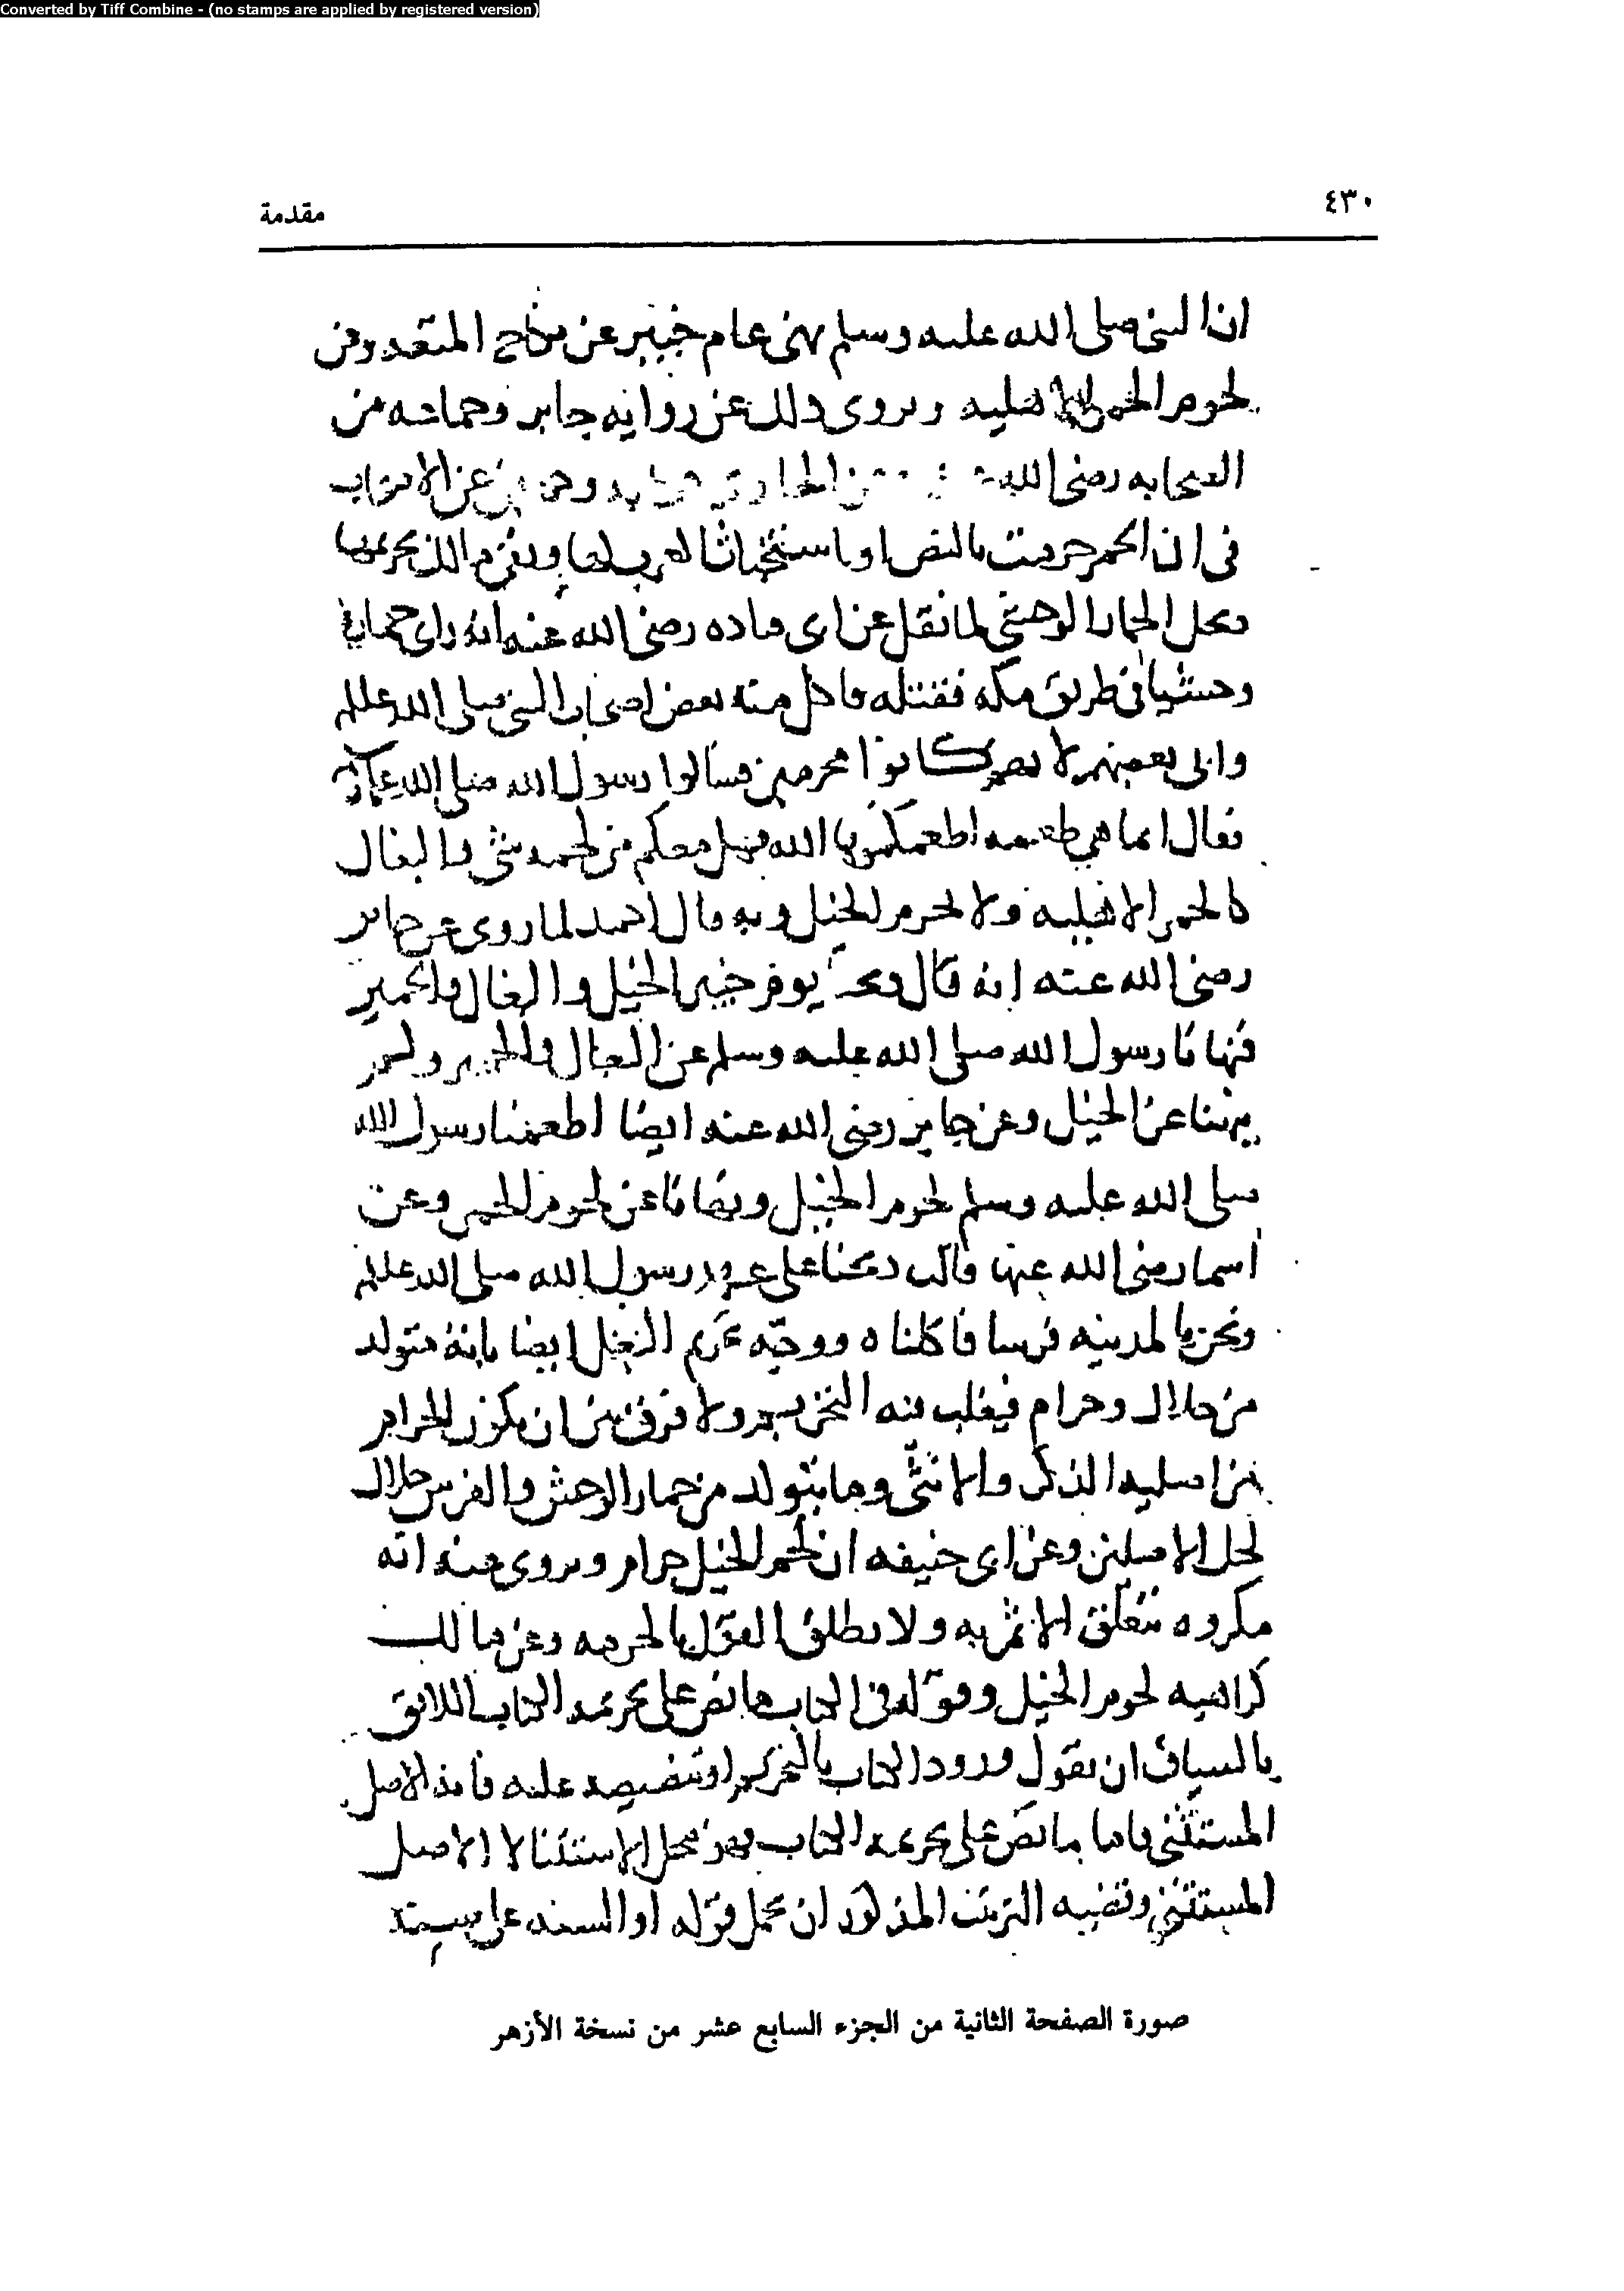 Converted by Tiff Combine - (no stamps are applied by registered version)
٤٣٠
مقدمة
ان النبى صلى الله عليه وسلم نهى عام خيبر عن نكاح المتعه وعن
لحوم الحمر الاهليه ويروى ذلك عن روايه جابر وجماعه من
الصحابه رضى الله عن الاصحاب
فى ان الحمر حرمت بالنص او باستخباث العرب لها
وحل الحمار الوحشى لما نقل عن ابى قتاده رضى الله عنه انه راى حمارا
وحشيا فى طريق مكه فقتله فاكل منه بعض اصحاب النبى صلى الله عليه وسلم
وابى بعضهم لانهم كانوا محرمين فسالوا رسول الله صلى الله عليه
فقال انما هى طعمه اطعمكموها الله فهل معكم من لحمه شى والبغال
كالحمر الاهليه ولا تحرم الخيل وبه قال احمد لما روى عن جابر
رضى الله عنه انه قال ذبحنا يوم خيبر الخيل والبغال والحمير
فنهانا رسول الله صلى الله عليه وسلم عن البغال والحمير ولم
ينهنا عن الخيل وعن جابر رضى الله عنه ايضا اطعمنا رسول الله
صلى الله عليه وسلم لحوم الخيل ونهانا عن لحوم الحمر وعن
اسما رضى الله عنها قالت ذبحنا على عهد رسول الله صلى الله عليه وسلم
ونحن بالمدينه فرسا فاكلناه ووجه تحريم البغل ايضا بانه متولد
من حلال وحرام فيغلب فيه التحريم ولا فرق بين ان يكون الحرام
من اصليه الذكر والانثى وما يتولد من حمار الوحش والفرس حلال
لحل الاصلين وعن ابى حنيفه ان لحم الخيل حرام ويروى عنه انه
مكروه يتعلق الاثم به ولا يطلق القول بالحرمه وعن مالك
كراهيه لحوم الخيل وقوله فى الكتاب ما نص على تحريمه الكتاب اللائق
بالسياق ان يقول ورود الكتاب بالتحريم او تنصيصه عليه فانه الاصل
المستثنى فاما ما نص على تحريمه الكتاب فهو محل الاستثنا لا الاصل
المستثنى وقضيه الترتيب المذكور ان يحمل قوله او السنه على
صورة الصفحة الثانية من الجزء السابع عشر من نسخة الأزهر